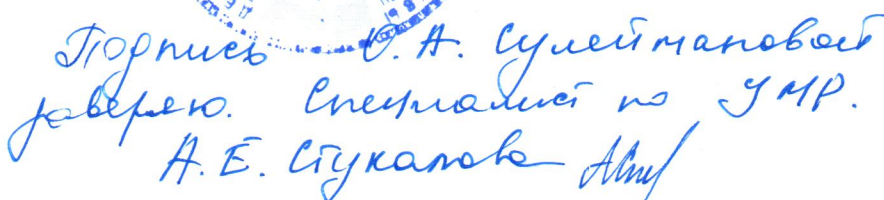 Подпись О.А. Сулеймановой
заверяю. Специалист по УМР.
А.Е. Стукалова